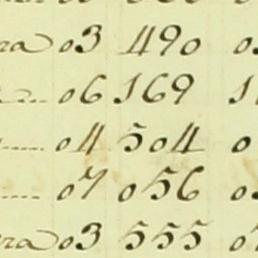 ra 03 490
06 169
04 504
07 056
ra 03 555